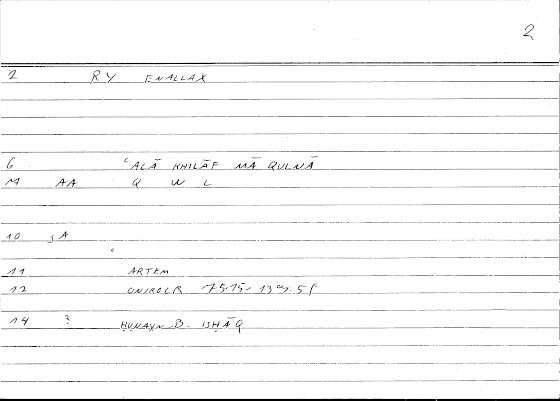 2
2 RY ENALLAX
6 ʿALĀ KHILĀF MĀ QULNĀ
M AA Q W L
10 A
11 ARTEM
12 ONIROCR
14 3 ḤUNAYN B. ISḤĀQ